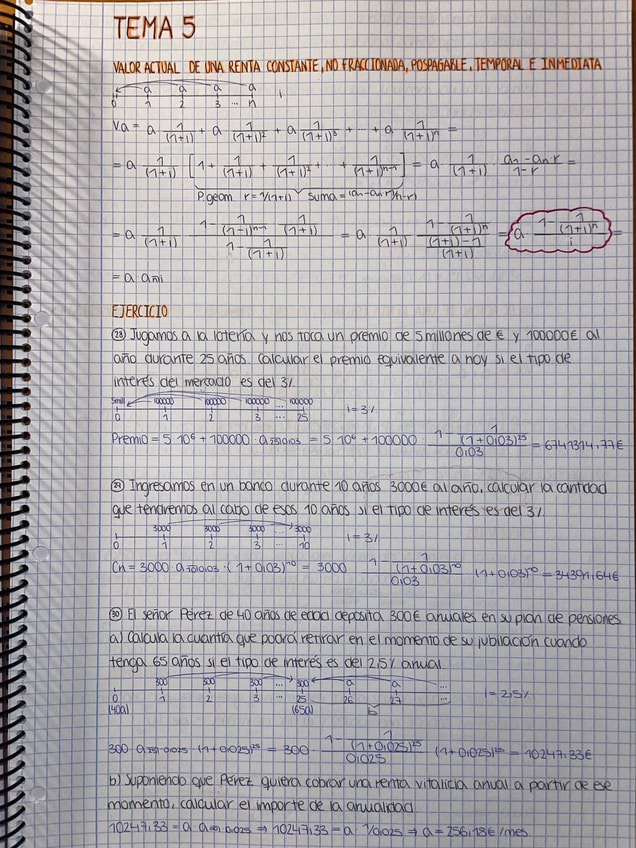 TEMA 5
VALOR ACTUAL DE UNA RENTA CONSTANTE, NO FRACCIONADA, POSPAGABLE, TEMPORAL E INMEDIATA
a a a a
0 1 2 3 ... n i
Va = a 1/(1+i) + a 1/(1+i)² + a 1/(1+i)³ + ... + a 1/(1+i)ⁿ =
= a 1/(1+i) [1 + 1/(1+i) + 1/(1+i)² + ... + 1/(1+i)ⁿ⁻¹] = a 1/(1+i) a₁-aₙ·r/1-r =
P.geom. r=1/(1+i) suma=(a₁-aₙ·r)/(1-r)
= a 1/(1+i) 1 - 1/(1+i)ⁿ⁻¹ 1/(1+i) / 1 - 1/(1+i) = a 1/(1+i) 1 - 1/(1+i)ⁿ / (1+i)-1/(1+i) = a 1 - 1/(1+i)ⁿ / i =
= a aₙ̅i
EJERCICIO
28 Jugamos a la lotería y nos toca un premio de 5 millones de € y 100000€ al
año durante 25 años. Calcular el premio equivalente a hoy si el tipo de
interés del mercado es del 3%
5mill 100000 100000 100000 100000
0 1 2 3 ... 25 i=3%
Premio = 5·10⁶ + 100000·a25̅0,03 = 5·10⁶ + 100000 · 1 - 1/(1+0,03)²⁵ / 0,03 = 6741314,77€
29 Ingresamos en un banco durante 10 años 3000€ al año. Calcular la cantidad
que tendremos al cabo de esos 10 años si el tipo de interés es del 3%
3000 3000 3000 ... 3000
0 1 2 3 ... 10 i=3%
Cn = 3000·a10̅0,03·(1+0,03)¹⁰ = 3000 1 - 1/(1+0,03)¹⁰ / 0,03 (1+0,03)¹⁰ = 34391,64€
30 El señor Pérez de 40 años de edad deposita 300€ anuales en su plan de pensiones
a) Calcula la cuantía que podrá retirar en el momento de su jubilación cuando
tenga 65 años si el tipo de interés es del 2,5% anual
300 300 300 ... 300 a a ...
0 1 2 3 ... 25 26 27 ... i=2,5%
(40a) (65a)
300·a25̅0,025 (1+0,025)²⁵ = 300· 1 - 1/(1+0,025)²⁵ / 0,025 (1+0,025)²⁵ = 10247,33€
b) Suponiendo que Pérez quiera cobrar una renta vitalicia anual a partir de ese
momento, calcular el importe de la anualidad
10247,33 = a a∞̅0,025 ⇒ 10247,33 = a 1/0,025 ⇒ a = 256,18€/mes